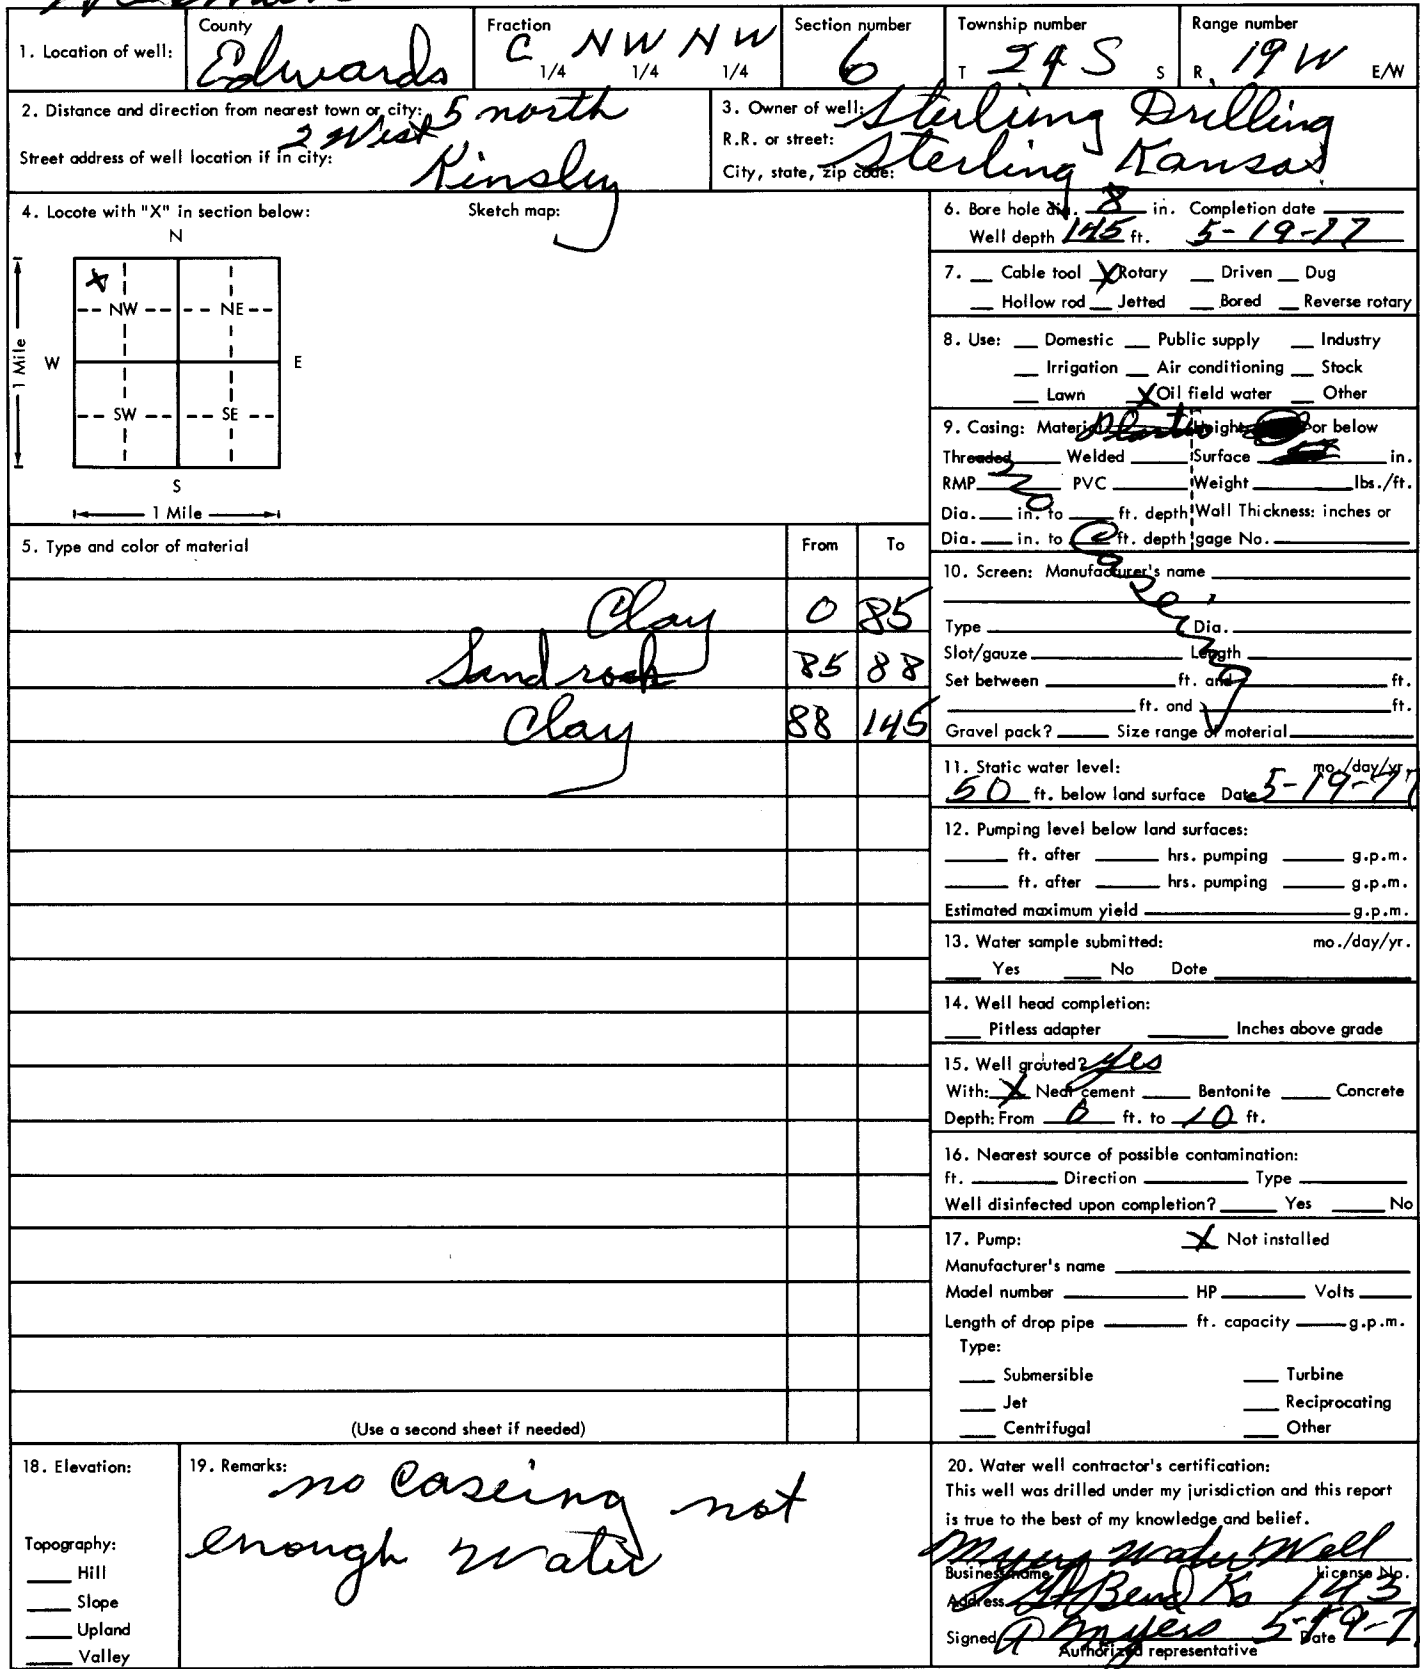 County
Fraction
Section number
Township number
Range number
1. Location of well:
Edwards
C NW NW
1/4 1/4 1/4
6
T 24 S S
R. 19 W E/W
2. Distance and direction from nearest town or city: 5 north
2 West
Street address of well location if in city:
Kinsley
3. Owner of well: Sterling Drilling
R.R. or street:
City, state, zip code: Sterling Kansas
4. Locate with "X" in section below:
Sketch map:
N
X
NW NE
W E
1 Mile
SW SE
S
1 Mile
5. Type and color of material From To
Clay 0 85
Sand rock 85 88
Clay 88 145
(Use a second sheet if needed)
6. Bore hole dia. 8 in. Completion date
Well depth 145 ft. 5-19-77
7. Cable tool X Rotary Driven Dug
Hollow rod Jetted Bored Reverse rotary
8. Use: Domestic Public supply Industry
Irrigation Air conditioning Stock
Lawn X Oil field water Other
9. Casing: Material Plastic Height or below
Threaded Welded Surface in.
RMP PVC Weight lbs./ft.
Dia. in. to ft. depth Wall Thickness: inches or
Dia. in. to ft. depth gage No.
no Caseing
10. Screen: Manufacturer's name
Type Dia.
Slot/gauze Length
Set between ft. and ft.
ft. and ft.
Gravel pack? Size range of material
11. Static water level: mo./day/yr.
50 ft. below land surface Date 5-19-77
12. Pumping level below land surfaces:
ft. after hrs. pumping g.p.m.
ft. after hrs. pumping g.p.m.
Estimated maximum yield g.p.m.
13. Water sample submitted: mo./day/yr.
Yes No Date
14. Well head completion:
Pitless adapter Inches above grade
15. Well grouted? yes
With: X Neat cement Bentonite Concrete
Depth: From 0 ft. to 10 ft.
16. Nearest source of possible contamination:
ft. Direction Type
Well disinfected upon completion? Yes No
17. Pump: X Not installed
Manufacturer's name
Model number HP Volts
Length of drop pipe ft. capacity g.p.m.
Type:
Submersible Turbine
Jet Reciprocating
Centrifugal Other
18. Elevation:
Topography:
Hill
Slope
Upland
Valley
19. Remarks: no Caseing not
enough water
20. Water well contractor's certification:
This well was drilled under my jurisdiction and this report
is true to the best of my knowledge and belief.
Myers Water Well
Business name License No.
Address Gt Bend Ks 143
Signed A Myers Date 5-19-7
Authorized representative